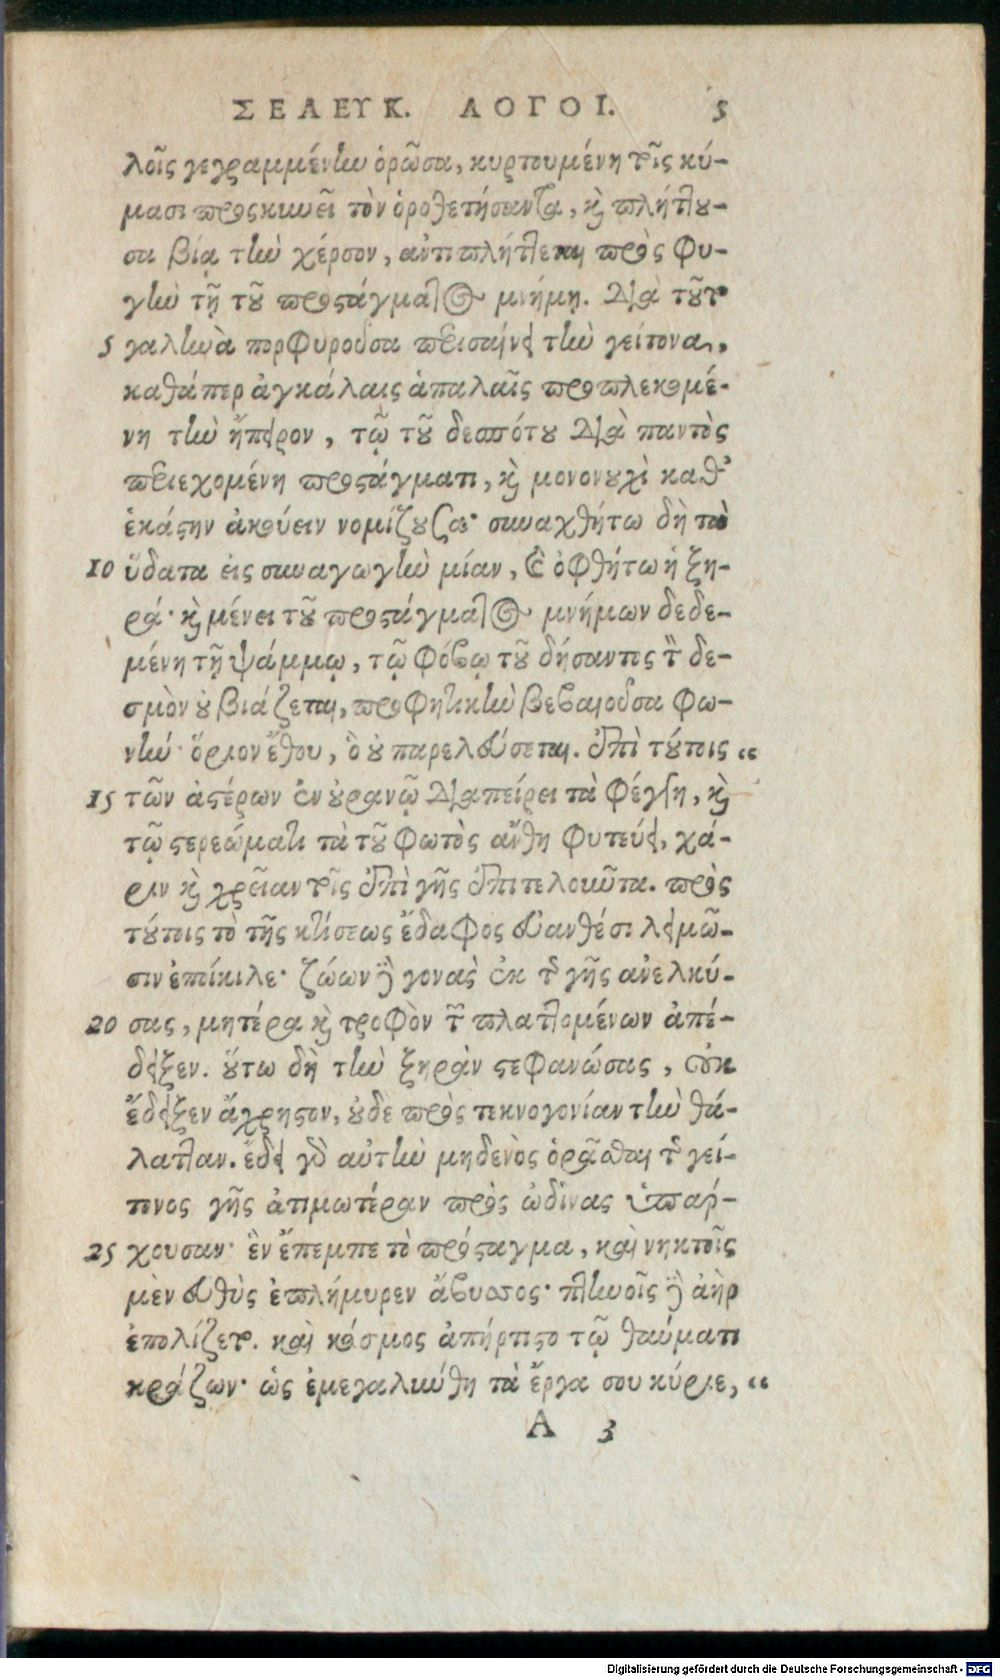 ΣΕΛΕΥΚ. ΛΟΓΟΙ. 5
λοῖς γεγραμμένην ὁρῶσα, κυρτουμένη τοῖς κύ-
μασι προσκυνεῖ τὸν ὁροθετήσαντα, καὶ πλήττου-
σα βίᾳ τὴν χέρσον, ἀντιπλήττεται πρὸς φυ-
γὴν τῇ τοῦ προστάγματος μνήμῃ. Διὰ τοῦτο
5 γαληνὰ πορφυροῦσα περισαίνει τὴν γείτονα,
καθάπερ ἀγκάλαις ἁπαλαῖς προσπλεκομέ-
νη τὴν ἤπειρον, τῷ τοῦ δεσπότου διὰ παντὸς
περιεχομένη προστάγματι, καὶ μονονουχὶ καθ’
ἑκάστην ἀκούειν νομίζουσα· συναχθήτω δὴ τὰ
10 ὕδατα εἰς συναγωγὴν μίαν, καὶ ὀφθήτω ἡ ξη-
ρά· καὶ μένει τοῦ προστάγματος μνήμων δεδε-
μένη τῇ ψάμμῳ, τῷ φόβῳ τοῦ δήσαντος τὸν δε-
σμὸν οὐ βιάζεται, προφητικὴν βεβαιοῦσα φω-
νήν· ὅριον ἔθου, ὃ οὐ παρελεύσεται. ἐπὶ τούτοις “
15 τῶν ἀστέρων ἐν οὐρανῷ διαπείρει τὰ φέγγη, καὶ
τῷ στερεώματι τὰ τοῦ φωτὸς ἄνθη φυτεύει, χά-
ριν καὶ χρείαν τοῖς ἐπὶ γῆς ἐπιτελοῦντα. πρὸς
τούτοις τὸ τῆς κτίσεως ἔδαφος εὐανθέσι λειμῶ-
σιν ἐποίκιλε· ζώων δὲ γονὰς ἐκ τῆς γῆς ἀνελκύ-
20 σας, μητέρα καὶ τροφὸν τῶν πλαττομένων ἀπέ-
δειξεν. οὕτω δὴ τὴν ξηρὰν στεφανώσας, οὐκ
ἔδειξεν ἄχρηστον, οὐδὲ πρὸς τεκνογονίαν τὴν θά-
λατταν. ἔδει γὰρ αὐτὴν μηδενὸς ὁρᾶσθαι τῆς γεί-
τονος γῆς ἀτιμωτέραν πρὸς ὠδῖνας ὑπάρ-
25 χουσαν· ἓν ἔπεμπε τὸ πρόσταγμα, καὶ νηκτοῖς
μὲν εὐθὺς ἐπλήμυρεν ἄβυσσος· πτηνοῖς δὲ ἀὴρ
ἐπολίζετο. καὶ κόσμος ἀπήρτιστο τῷ θαύματι
κράζων· ὡς ἐμεγαλύνθη τὰ ἔργα σου κύριε, “
A 3
Digitalisierung gefördert durch die Deutsche Forschungsgemeinschaft - DFG